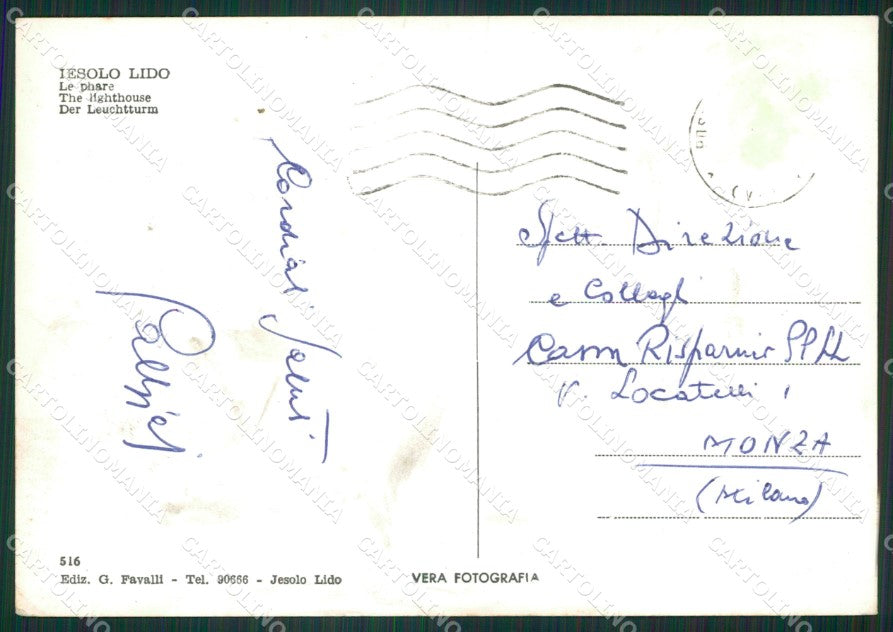 IESOLO LIDO
Le phare
The lighthouse
Der Leuchtturm
Cordiali Saluti
Spett. Direzione
e Colleghi
Risparmio PP LL
V. Locatelli 1
MONZA
(Milano)
516
Ediz. G. Favalli - Tel. 90666 - Jesolo Lido
VERA FOTOGRAFIA
CARTOLINOMANIA